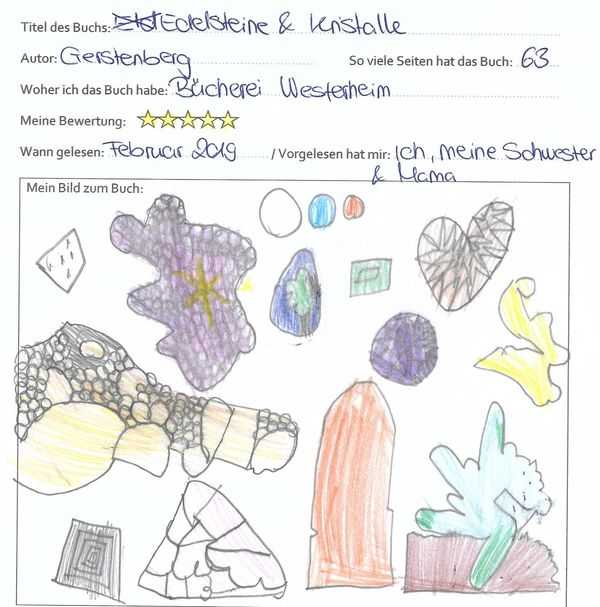 Titel des Buchs: Edelsteine & Kristalle
Autor: Gerstenberg So viele Seiten hat das Buch: 63
Woher ich das Buch habe: Bücherei Westerheim
Meine Bewertung:
Wann gelesen: Februar 2019 / Vorgelesen hat mir: Ich, meine Schwester
& Mama
Mein Bild zum Buch: